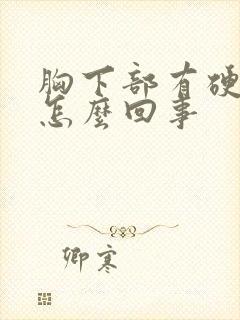 胸下部有硬
怎麼回事
卿寒